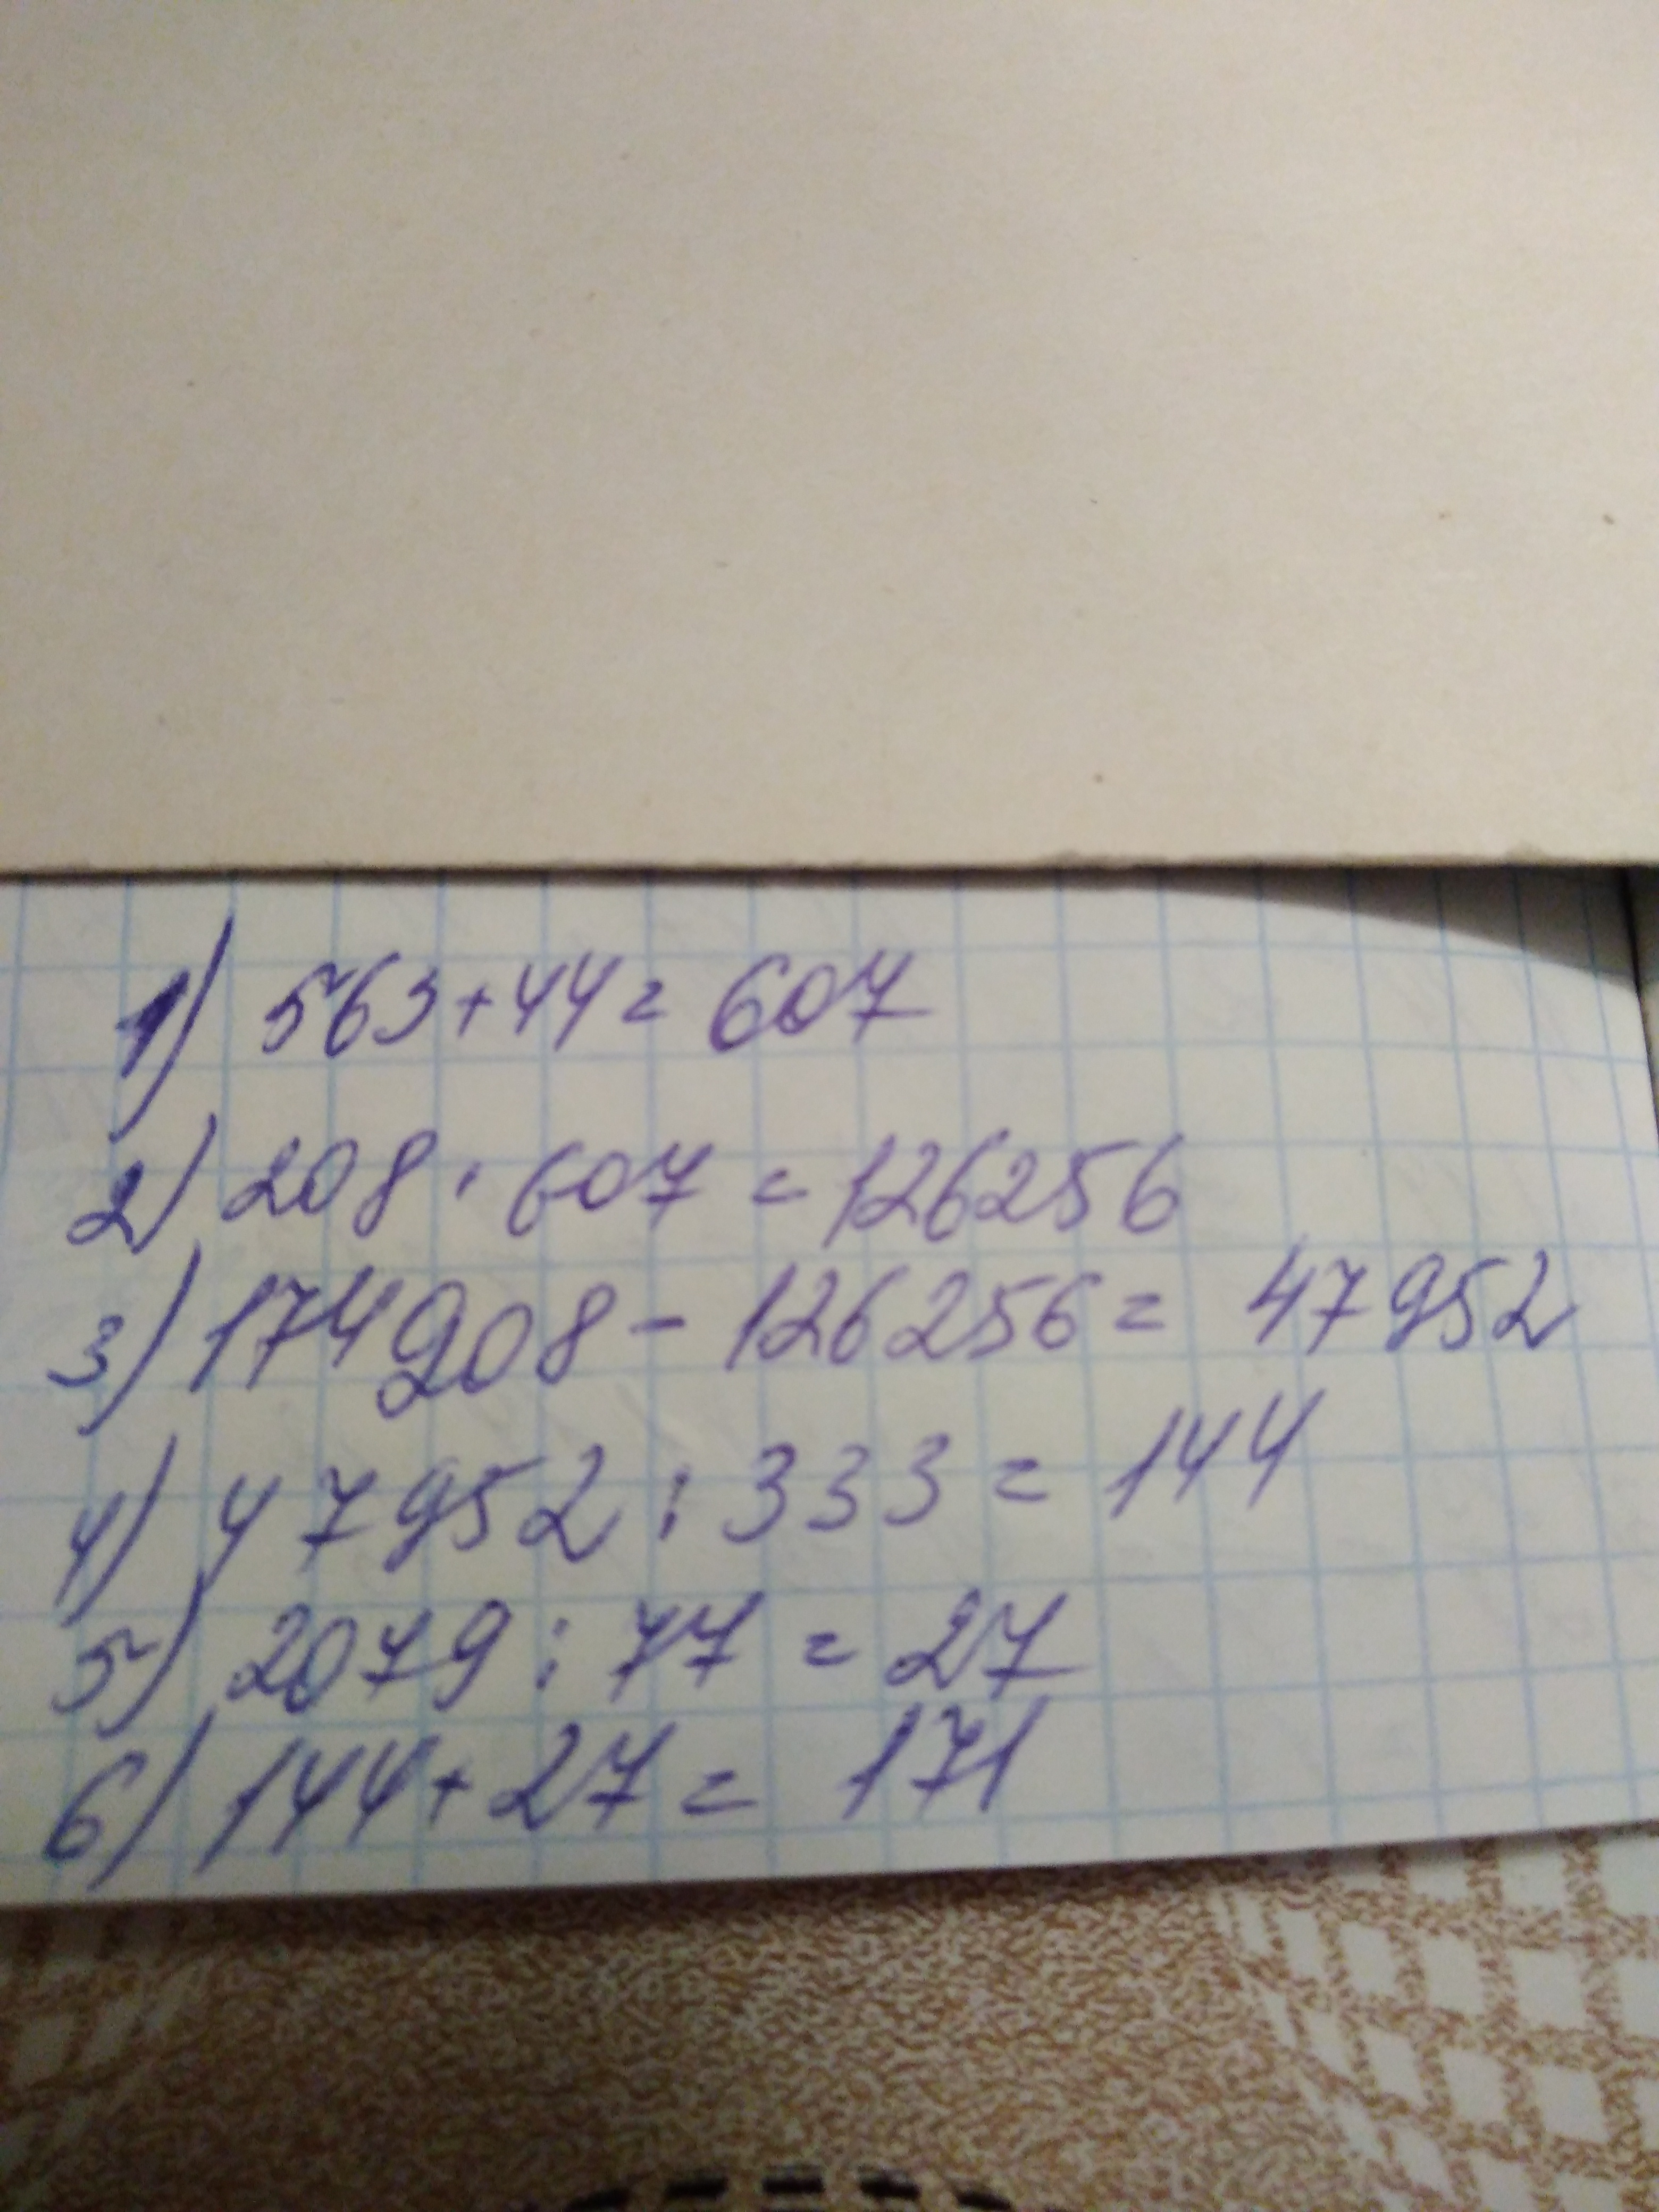 1) 563+44=607
2) 208·607=126256
3) 174208-126256=47952
4) 47952:333=144
5) 2079:77=27
6) 144+27=171